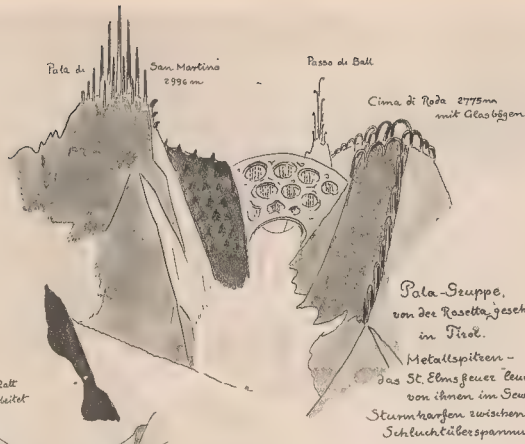 Pala di San Martino
2996 m
Passo di Ball
Cima di Roda 2775m
mit Glasbögen
Pala-Gruppe,
von der Rosetta geseh
in Tirol.
Metallspitzen –
das St. Elmsfeuer leuc
von ihnen im Gew
Sturmharfen zwischen
Schluchtüberspannu
beitet